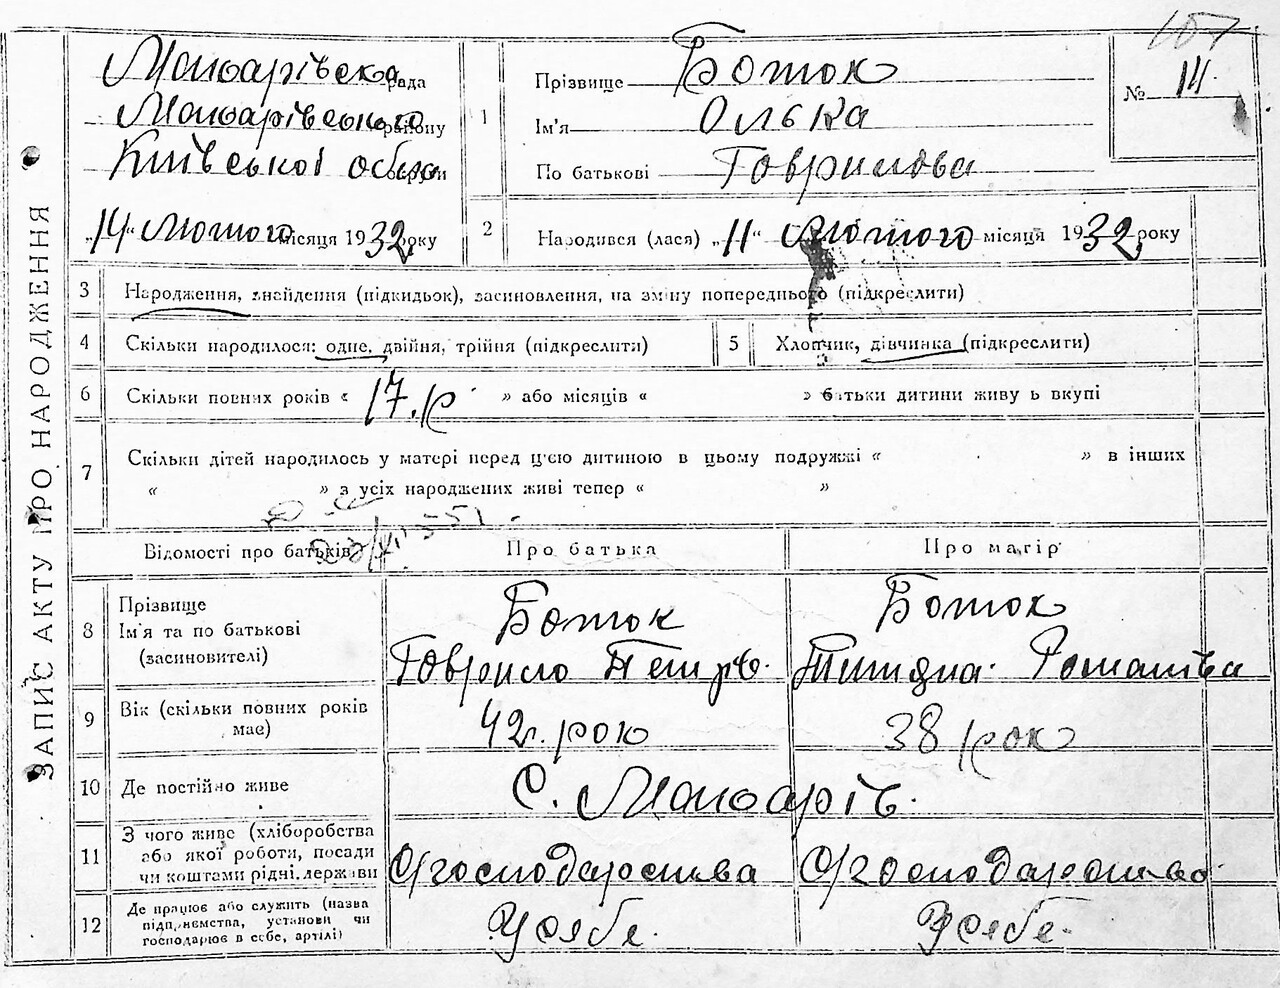 107
Макарівска рада
Макарівського району
Київської округи
„14“ Лютого місяця 1932 року
ЗАПИС АКТУ ПРО НАРОДЖЕННЯ
1
Прізвище Боток
Ім'я Олька
По батькові Говрилова
№ 14
2
Народився (лася) „11“ Лютого місяця 1932 року
3 Народження, знайдення (підкидьок), засиновлення, на зміну попереднього (підкреслити)
4 Скільки народилося: одне, двійня, трійня (підкреслити)
5 Хлопчик, дівчинка (підкреслити)
6 Скільки повних років « 17.р » або місяців « » батьки дитини живуть вкупі
7 Скільки дітей народилось у матері перед цією дитиною в цьому подружжі « » в інших
« » з усіх народжених живі тепер « »
Відомості про батьків
Про батька
Про матір
8 Прізвище
Ім'я та по батькові
(засиновителі)
Боток
Говрило Петро.
Боток
Романівна
9 Вік (скільки повних років
має)
42. рою
38 рок
10 Де постійно живе
С. Макарів.
11 З чого живе (хліборобства
або якої роботи, посади
чи коштами рідні, держави
С/господарства
С/господарства
12 Де працює або служить (назва
підприємства, установи чи
господарює в себе, артілі)
У себе.
У себе.